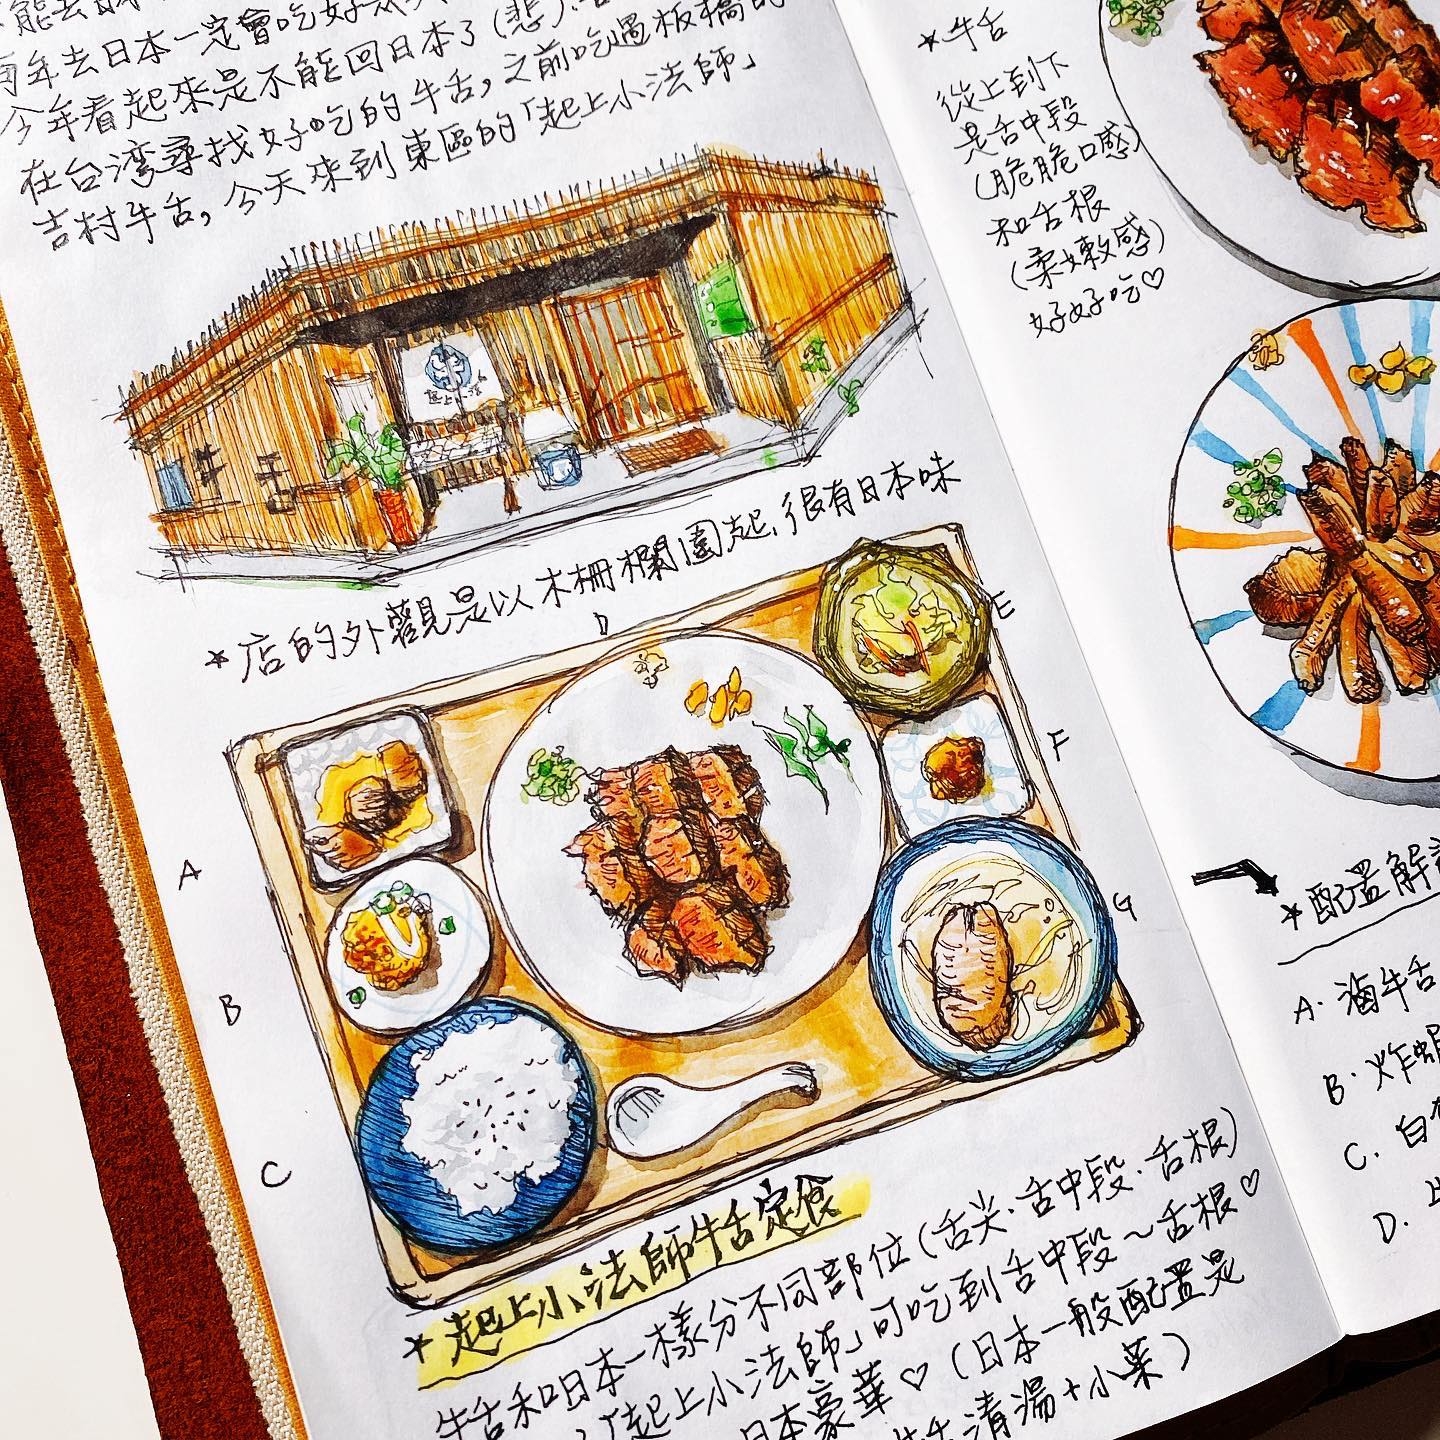 每年去日本一定會吃好
今年看起來是不能回日本了(悲).
在台湾尋找好吃的牛舌,之前吃過板橋的
吉村牛舌,今天來到東區的「起上小法師」
起上小法師
*店的外觀是以木柵欄圍起,很有日本味
A
B
C
D
E
F
G
*起上小法師牛舌定食
牛舌和日本一樣分不同部位(舌尖.舌中段.舌根)
「起上小法師」可吃到舌中段~舌根♡
日本豪華♡(日本一般配置是
清湯+小菜)
*牛舌
從上到下
是舌中段
(脆脆口感)
和舌根
(柔嫩感)
好好吃♡
*配置解
A.滷牛舌
B.炸蝦
C.白
D.牛